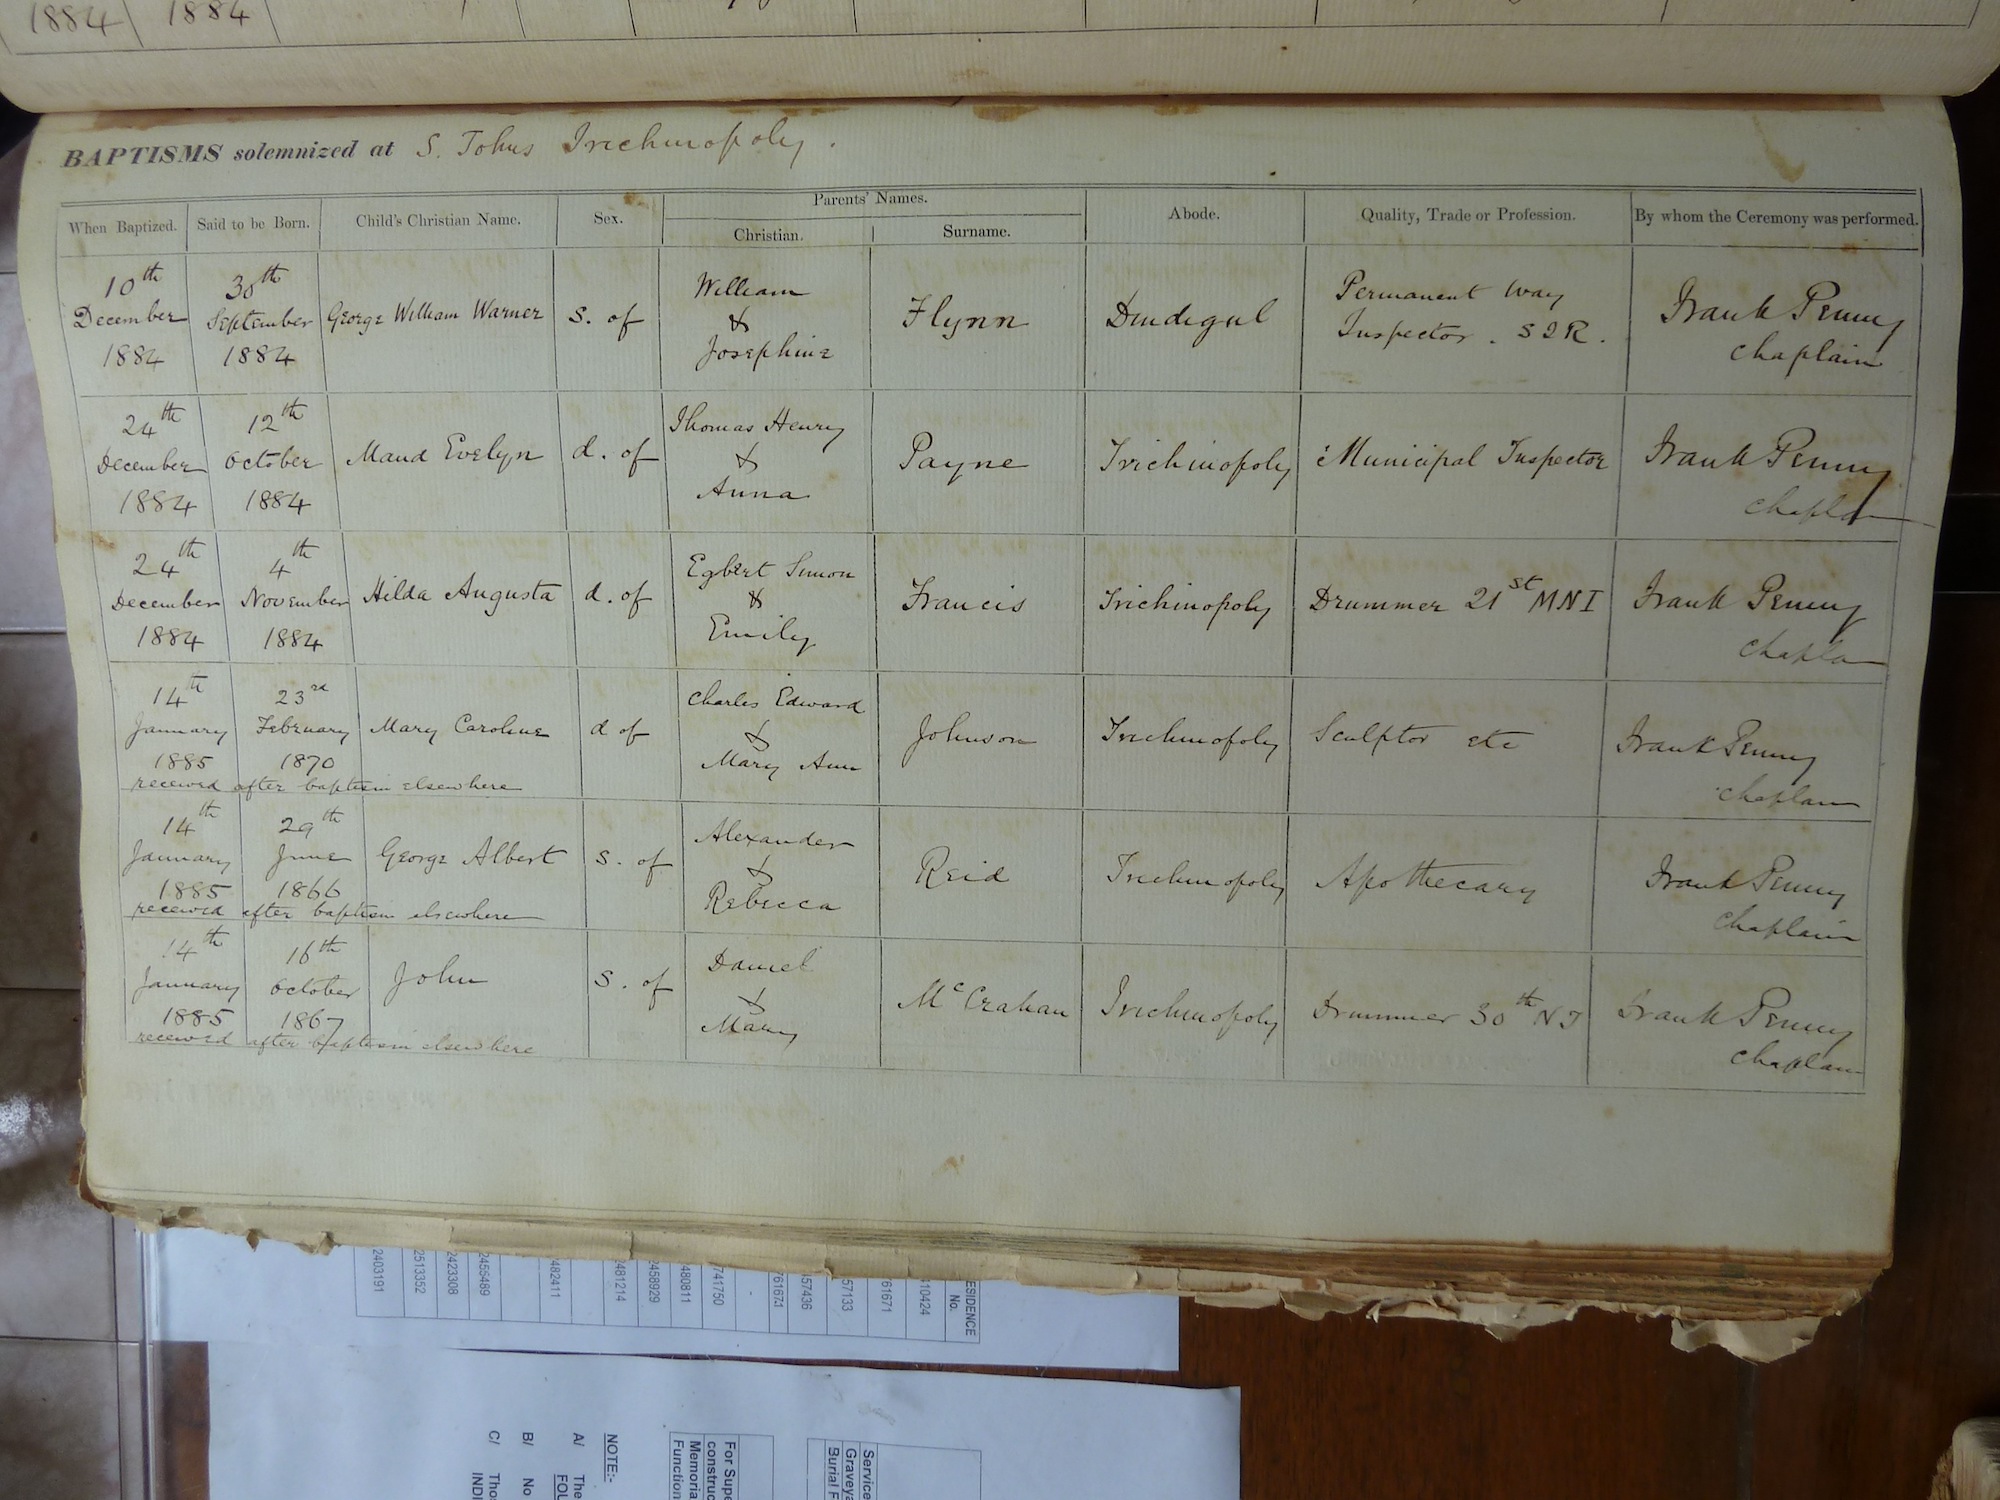 1884 1884
BAPTISMS solemnized at S. Johns Trichinopoly.
When Baptized. Said to be Born. Child's Christian Name. Sex. Parents' Names. Abode. Quality, Trade or Profession. By whom the Ceremony was performed.
Christian. Surname.
10th December 1884 30th September 1884 George William Warner s. of William & Josephine Flynn Dindigul Permanent Way Inspector. S I R. Frank Penny Chaplain
24th December 1884 12th October 1884 Maud Evelyn d. of Thomas Henry & Anna Payne Trichinopoly Municipal Inspector Frank Penny Chaplain
24th December 1884 4th November 1884 Hilda Augusta d. of Egbert Simon & Emily Francis Trichinopoly Drummer 21st MNI Frank Penny Chaplain
14th January 1885 23rd February 1870 Mary Caroline d of Charles Edward & Mary Ann Johnson Trichinopoly Sculptor etc Frank Penny Chaplain
received after baptism elsewhere
14th January 1885 29th June 1866 George Albert s. of Alexander & Rebecca Reid Trichinopoly Apothecary Frank Penny Chaplain
received after baptism elsewhere
14th January 1885 16th October 1867 John S. of Daniel & Mary McCrahan Trichinopoly Drummer 30th NI Frank Penny Chaplain
received after baptism elsewhere
ESIDENCE No.
10424
61671
57133
57436
761671
-
741750
480811
2458929
2481214
482411
2455489
2423308
2513352
2403191
Service
Graveya
Burial F
For Supe
construc
Memoria
Function
NOTE:-
A/ The
FOU
B/ No
C/ Tho
INDI